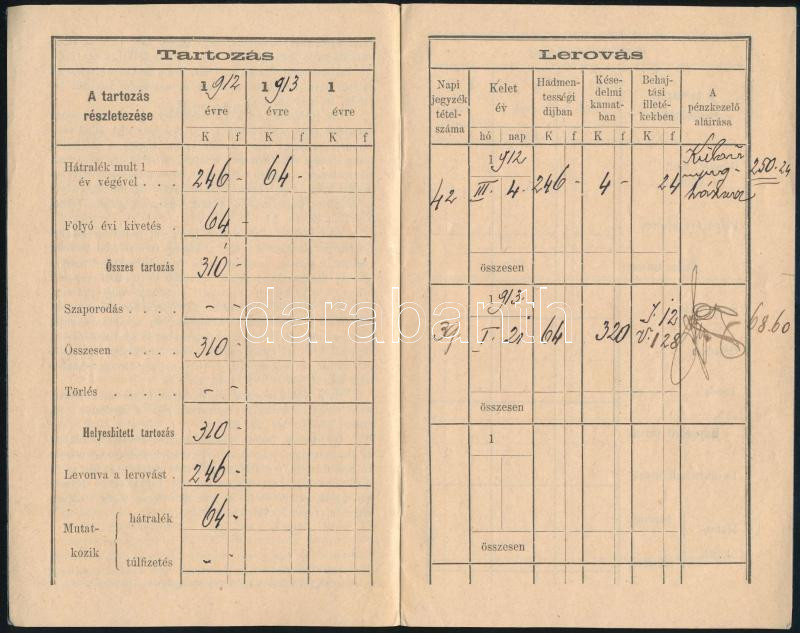 Tartozás
A tartozás részletezése
1912 évre
1913 évre
1 évre
K f K f K f
Hátralék mult 1
év végével . . . 246 - 64 -
Folyó évi kivetés . 64 -
Összes tartozás 310 -
Szaporodás . . . . - -
Összesen . . . . . 310 -
Törlés . . . . . - -
Helyesbitett tartozás 310 -
Levonva a lerovást . 246 -
Mutatkozik
hátralék 64 -
túlfizetés - -
Lerovás
Napi jegyzék tételszáma
Kelet év
hó nap
Hadmentességi dijban
K f
Késedelmi kamatban
K f
Behajtási illetékekben
K f
A pénzkezelő aláirása
1912
42 III. 4. 246 - 4 - 24 250.24
összesen
1913
39 I. 21 64 320 I. 12 68.60
V. 128
összesen
1
összesen
darabanth